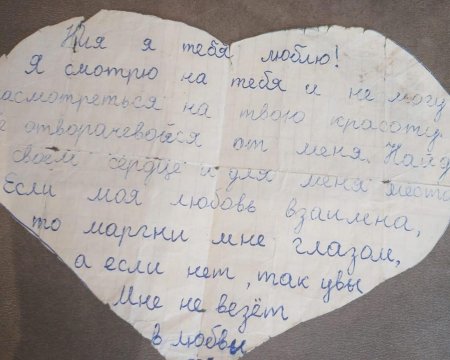 Ния я тебя люблю!
Я смотрю на тебя и не могу
насмотреться на твою красоту.
Не отворачевойся от меня. Найди
в своем сердце и для меня место
Если моя любовь взаимена,
то маргни мне глазом,
а если нет, так увы
Мне не везёт
в любви